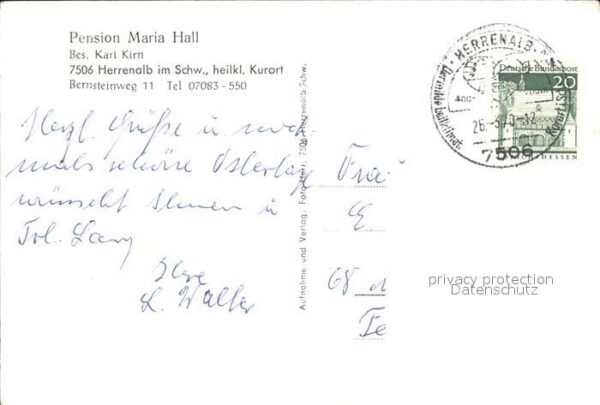 Pension Maria Hall
Bes. Karl Kirn
7506 Herrenalb im Schw., heilkl. Kurort
Bernsteinweg 11 Tel 07083 - 550
Herzl. Grüße u. noch
mals schöne Ostertage
wünscht Ihnen u.
Frl. Lang
Ihre
L. Walter
Aufnahme und Verlag: Foto 7506 Herrenalb-Schw.
HERRENALB
7506
Deutsche Bundespost
20
HESSEN
Frau
E
68
privacy protection
Datenschutz